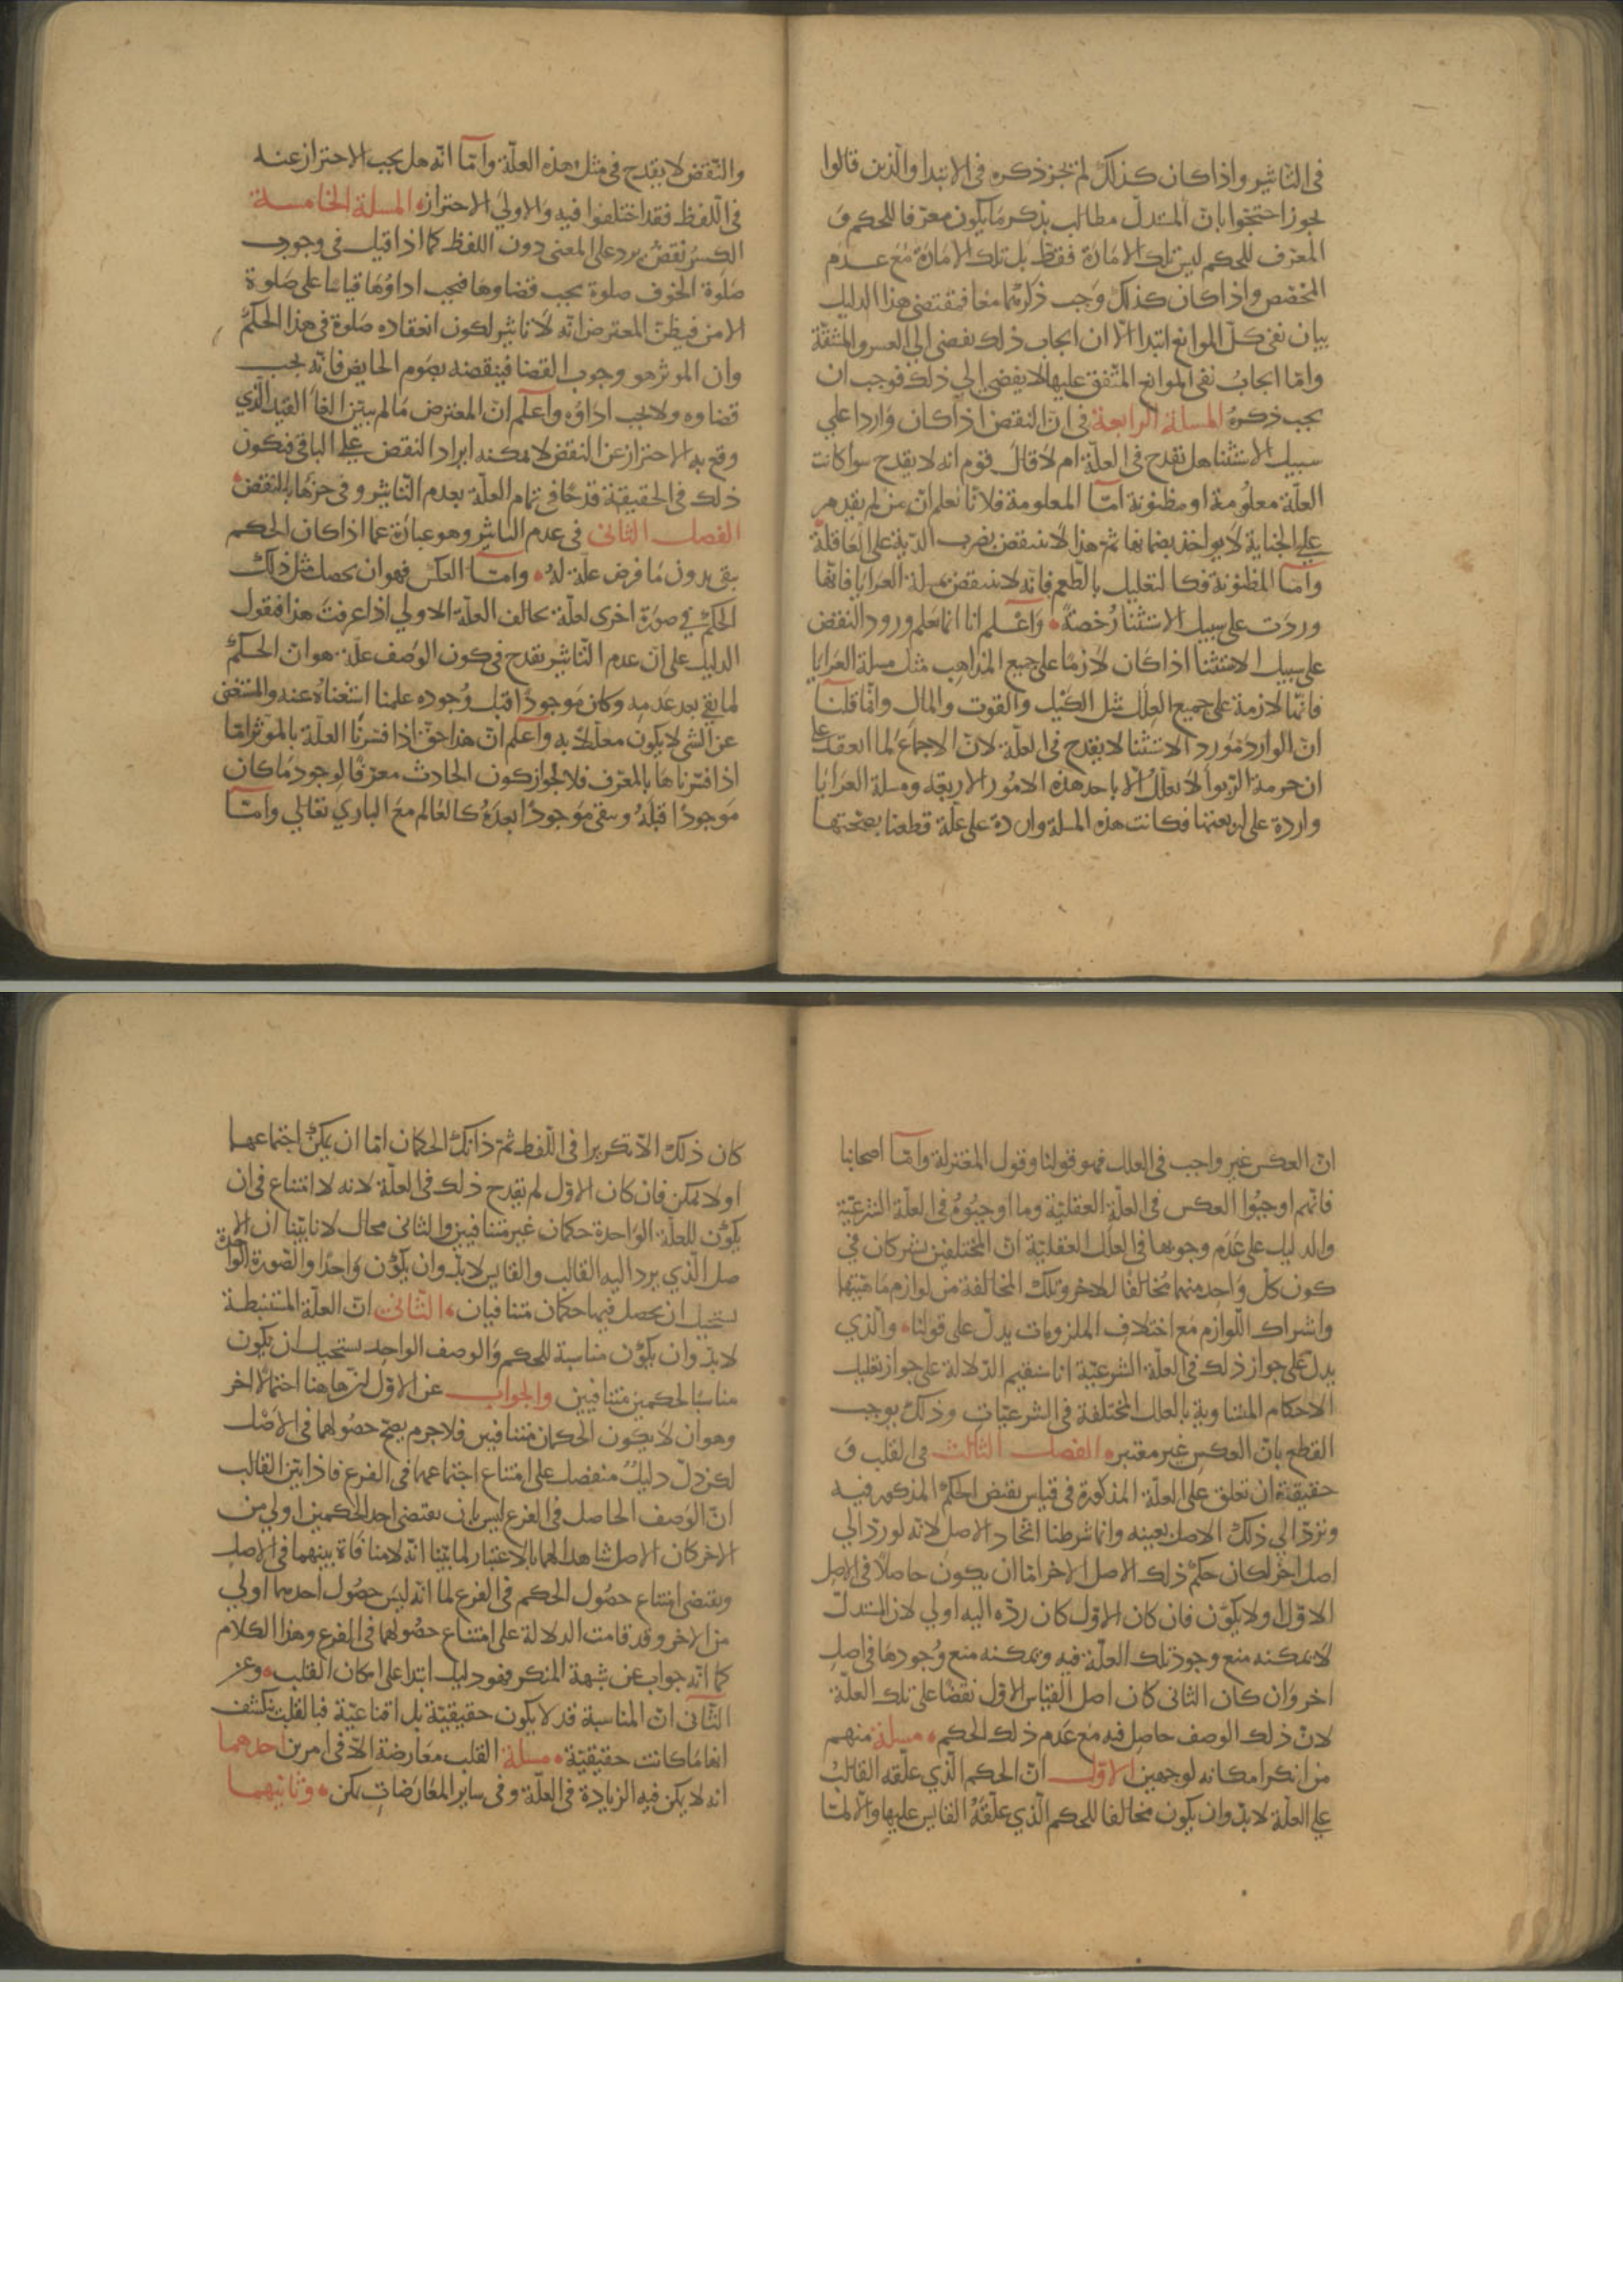 فى التاثير واذا كان كذلك لم يجز ذكره فى الابتدا والذين قالوا
يجوز احتجوا بان المستدل مطالب بذكر ما يكون معرفا للحكم و
المعرف للحكم ليس تلك الامارة فقط بل تلك الامارة مع عدم
المخصص واذا كان كذلك وجب ذكرهما معا فمقتضى هذا الدليل
بيان نفى كل الموانع ابتدا الا ان ايجاب ذلك يفضى الى العسر والمشقة
واما ايجاب نفى الموانع المتفق عليها لا يفضى الى ذلك فوجب ان
يجب ذكره المسلة الرابعة فى ان النقض اذا كان واردا على
سبيل الاستثنا هل يقدح فى العلة ام لا قال قوم انه لا يقدح سوا كانت
العلة معلومة او مظنونة اما المعلومة فلانا نعلم ان من لم يقدم
على الجناية لا يواخذ بضمانها ثم هذا لا ينتقض بضرب الدية على العاقلة
واما المظنونة فكالتعليل بالطعم فانه لا ينتقض بمسلة العرايا فانها
وردت على سبيل الاستثنا رخصة واعلم انا انما نعلم ورود النقض
على سبيل الاستثنا اذا كان لازما على جميع المذاهب مثل مسلة العرايا
فانها لازمة على جميع العلل مثل الكيل والقوت والمال وانما قلنا
ان الوارد مورد الاستثنا لا يقدح فى العلة لان الاجماع لما انعقد على
ان حرمة الربوا لا تعلل الا باحد هذه الامور الاربعة ومسلة العرايا
واردة على اربعتها فكانت هذه المسلة واردة على علة قطعنا بصحتها
والنقض لا يقدح فى مثل هذه العلة واما انه هل يجب الاحتراز عنه
فى اللفظ فقد اختلفوا فيه والاولى الاحتراز المسلة الخامسة
الكسر نقض يرد على المعنى دون اللفظ كما اذا قيل فى وجوب
صلوة الخوف صلوة يجب قضاوها فيجب اداؤها قياسا على صلوة
الامن فيظن المعترض انه لا تاثير لكون انعقاده صلوة فى هذا الحكم
وان الموثر هو وجوب القضا فينقضه بصوم الحايض فانه يجب
قضاوه ولا يجب اداؤه واعلم ان المعترض ما لم يبين الغا القيد الذي
وقع به الاحتراز عن النقض لا يمكنه ايراد النقض على الباقى فيكون
ذلك فى الحقيقة قدحا فى تمام العلة بعدم التاثير وفى جزها بالنقض
الفصل الثانى فى عدم التاثير وهو عبارة عما اذا كان الحكم
يبقى بدون ما فرض علة له واما العكس فهو ان يحصل مثل ذلك
الحكم في صورة اخرى لعلة تخالف العلة الاولى اذا عرفت هذا فنقول
الدليل على ان عدم التاثير يقدح فى كون الوصف علة هو ان الحكم
لما بقى بعد عدمه وكان موجودا قبل وجوده علمنا استغناه عنه والمستغنى
عن الشى لا يكون معللا به واعلم ان هذا حق اذا فسرنا العلة بالموثر اما
اذا فسرناها بالمعرف فلا لجواز كون الحادث معرفا لوجود ما كان
موجودا قبله ويبقى موجودا بعده كالعالم مع الباري تعالى واما
ان العكس غير واجب فى العلل فهو قولنا وقول المعتزلة واما اصحابنا
فانهم اوجبوا العكس فى العلة العقلية وما اوجبوه فى العلة الشرعية
والدليل على عدم وجوبها فى العلل العقلية ان المختلفين يشتركان في
كون كل واحد منهما مخالفا للاخر وتلك المخالفة من لوازم ماهيتهما
واشتراك اللوازم مع اختلاف الملزومات يدل على قولنا والذي
يدل على جواز ذلك فى العلة الشرعية انا سنقيم الدلالة على جواز تعليل
الاحكام المتساوية بالعلل المختلفة فى الشرعيات وذلك يوجب
القطع بان العكس غير معتبر الفصل الثالث فى القلب و
حقيقته ان تعلق على العلة المذكورة فى قياس نقيض الحكم المذكور فيه
وتردّ الى ذلك الاصل بعينه وانما شرطنا اتحاد الاصل لانه لو رد الى
اصل اخر لكان حكم ذلك الاصل الاخر اما ان يكون حاصلا فى الاصل
الاول او لا يكون فان كان الاول كان رده اليه اولى لان المستدل
لا يمكنه منع وجود تلك العلة فيه ويمكنه منع وجودها فى اصل
اخر وان كان الثانى كان اصل القياس الاول نقضا على تلك العلة
لان ذلك الوصف حاصل فيه مع عدم ذلك الحكم مسلة منهم
من انكر امكانه لوجهين الاول ان الحكم الذي علقه القالب
على العلة لا بد وان يكون مخالفا للحكم الذي علقه القايس عليها والا لما
كان ذلك الا تكريرا فى اللفظ ثم ذانك الحكمان اما ان يمكن اجتماعهما
او لا يمكن فان كان الاول لم يقدح ذلك فى العلة لانه لا امتناع فى ان
يكون للعلة الواحدة حكمان غير متنافيين والثانى محال لانا بينا ان الا
صل الذي يرد اليه القالب والقايس لا بد وان يكون واحدا والصورة الواحدة
يستحيل ان يحصل فيها حكمان متنافيان الثانى ان العلة المستنبطة
لا بد وان يكون مناسبة للحكم والوصف الواحد يستحيل ان يكون
مناسبا لحكمين متنافيين والجواب عن الاول ان هاهنا احتمالا اخر
وهو ان لا يكون الحكمان متنافيين فلا جرم يصح حصولهما فى الاصل
لكن دل دليل منفصل على امتناع اجتماعهما فى الفرع فاذا بين القالب
ان الوصف الحاصل فى الفرع ليس بان يقتضى احد الحكمين اولى من
الاخر كان الاصل شاهدا لهما بالاعتبار لما بينا انه لا منافاة بينهما فى الاصل
ويقتضى امتناع حصول الحكم فى الفرع لما انه ليس حصول احدهما اولى
من الاخر وقد قامت الدلالة على امتناع حصولهما فى الفرع وهذا الكلام
كما انه جواب عن شبهة المنكر فهو دليل ابتدا على امكان القلب وعن
الثانى ان المناسبة قد لا يكون حقيقية بل اقناعية فبالقلب ينكشف
انها ما كانت حقيقية مسلة القلب معارضة الا فى امرين احدهما
انه لا يمكن فيه الزيادة فى العلة وفى ساير المعارضات يمكن وثانيهما